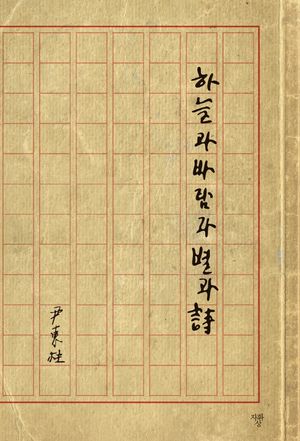 하늘과바람과별과詩
尹東柱
자화상